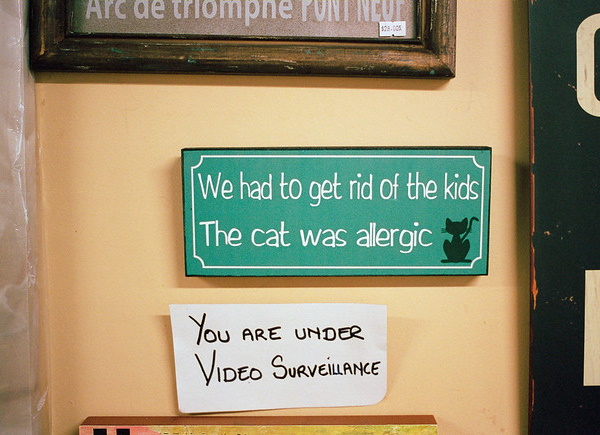 Arc de triomphe PONT NEUF
We had to get rid of the kids
The cat was allergic
YOU ARE UNDER
VIDEO SURVEILLANCE